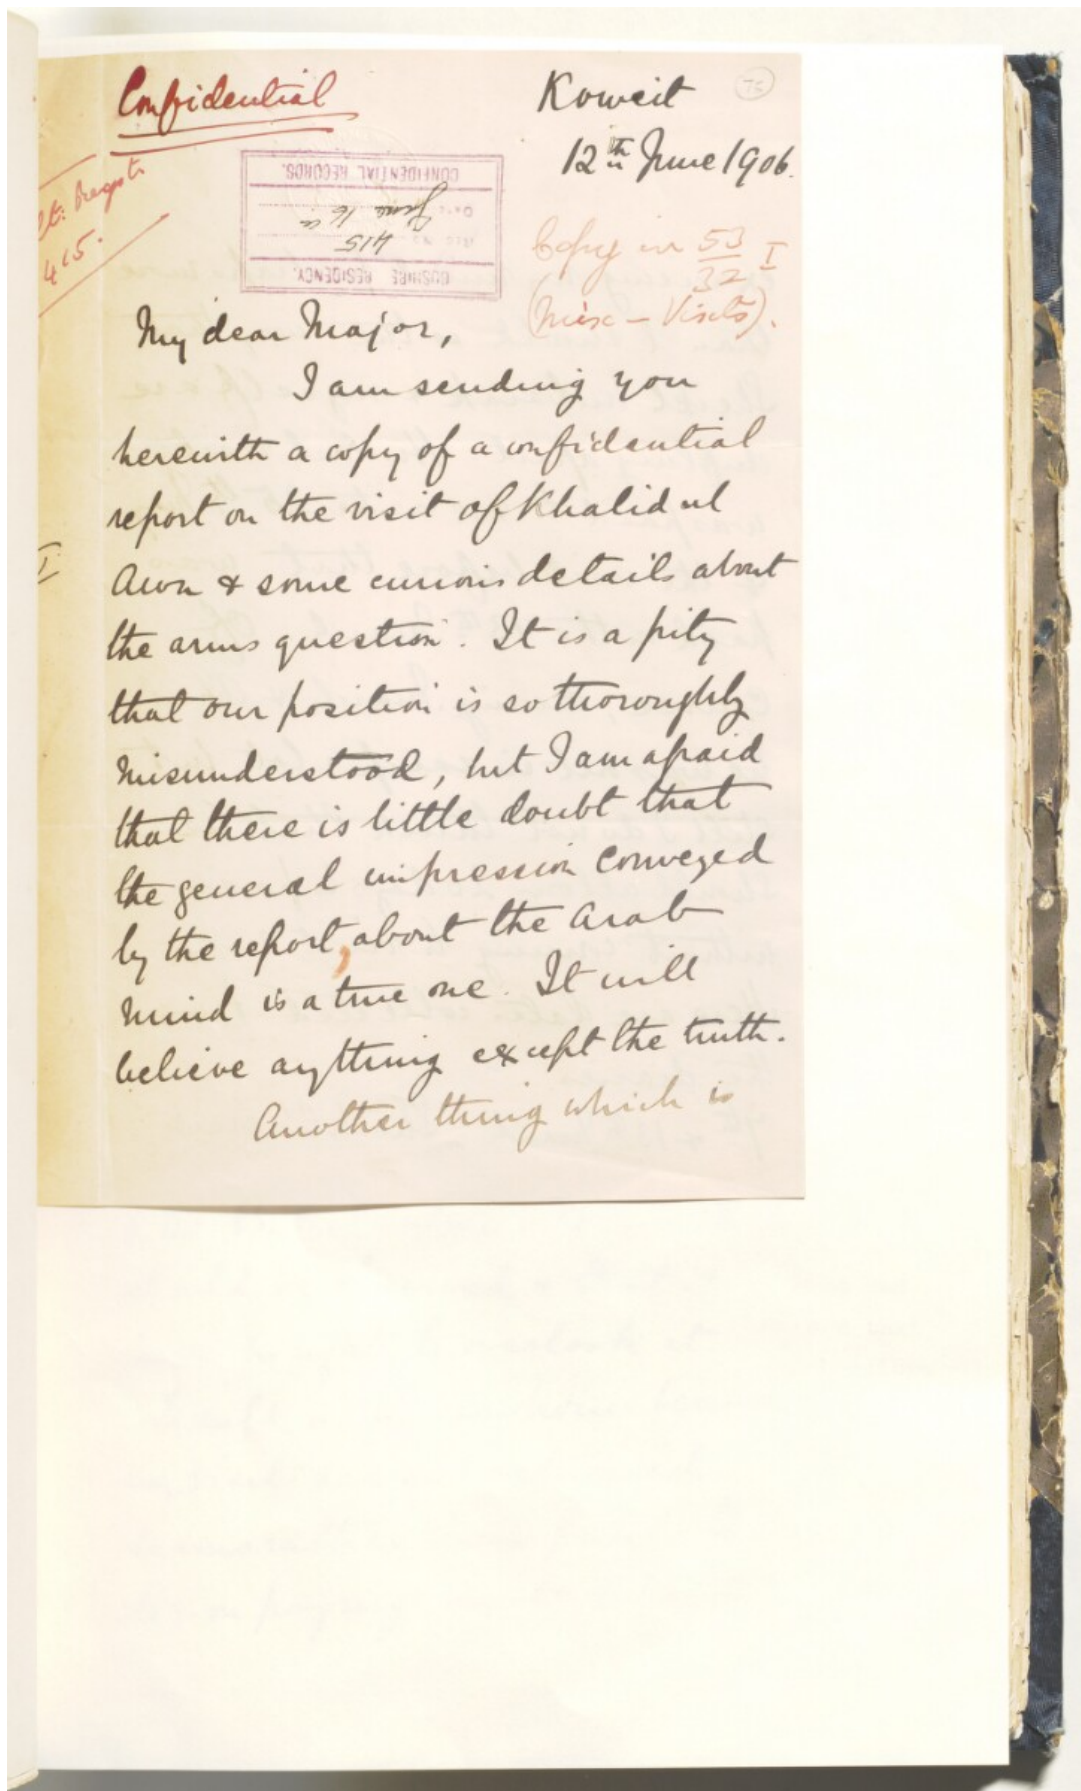 Confidential
Koweit
76
12th June 1906.
BUSHIRE RESIDENCY.
REG. No. 415
DATE June 16
CONFIDENTIAL RECORDS.
415.
Copy in 53/32 I
(Misc – Visits).
My dear Major,
I am sending you
herewith a copy of a confidential
report on the visit of Khalid ul
Aun & some curious details about
I
the arms question. It is a pity
that our position is so thoroughly
misunderstood, but I am afraid
that there is little doubt that
the general impression conveyed
by the report, about the Arab
mind is a true one. It will
believe anything except the truth.
Another thing which is